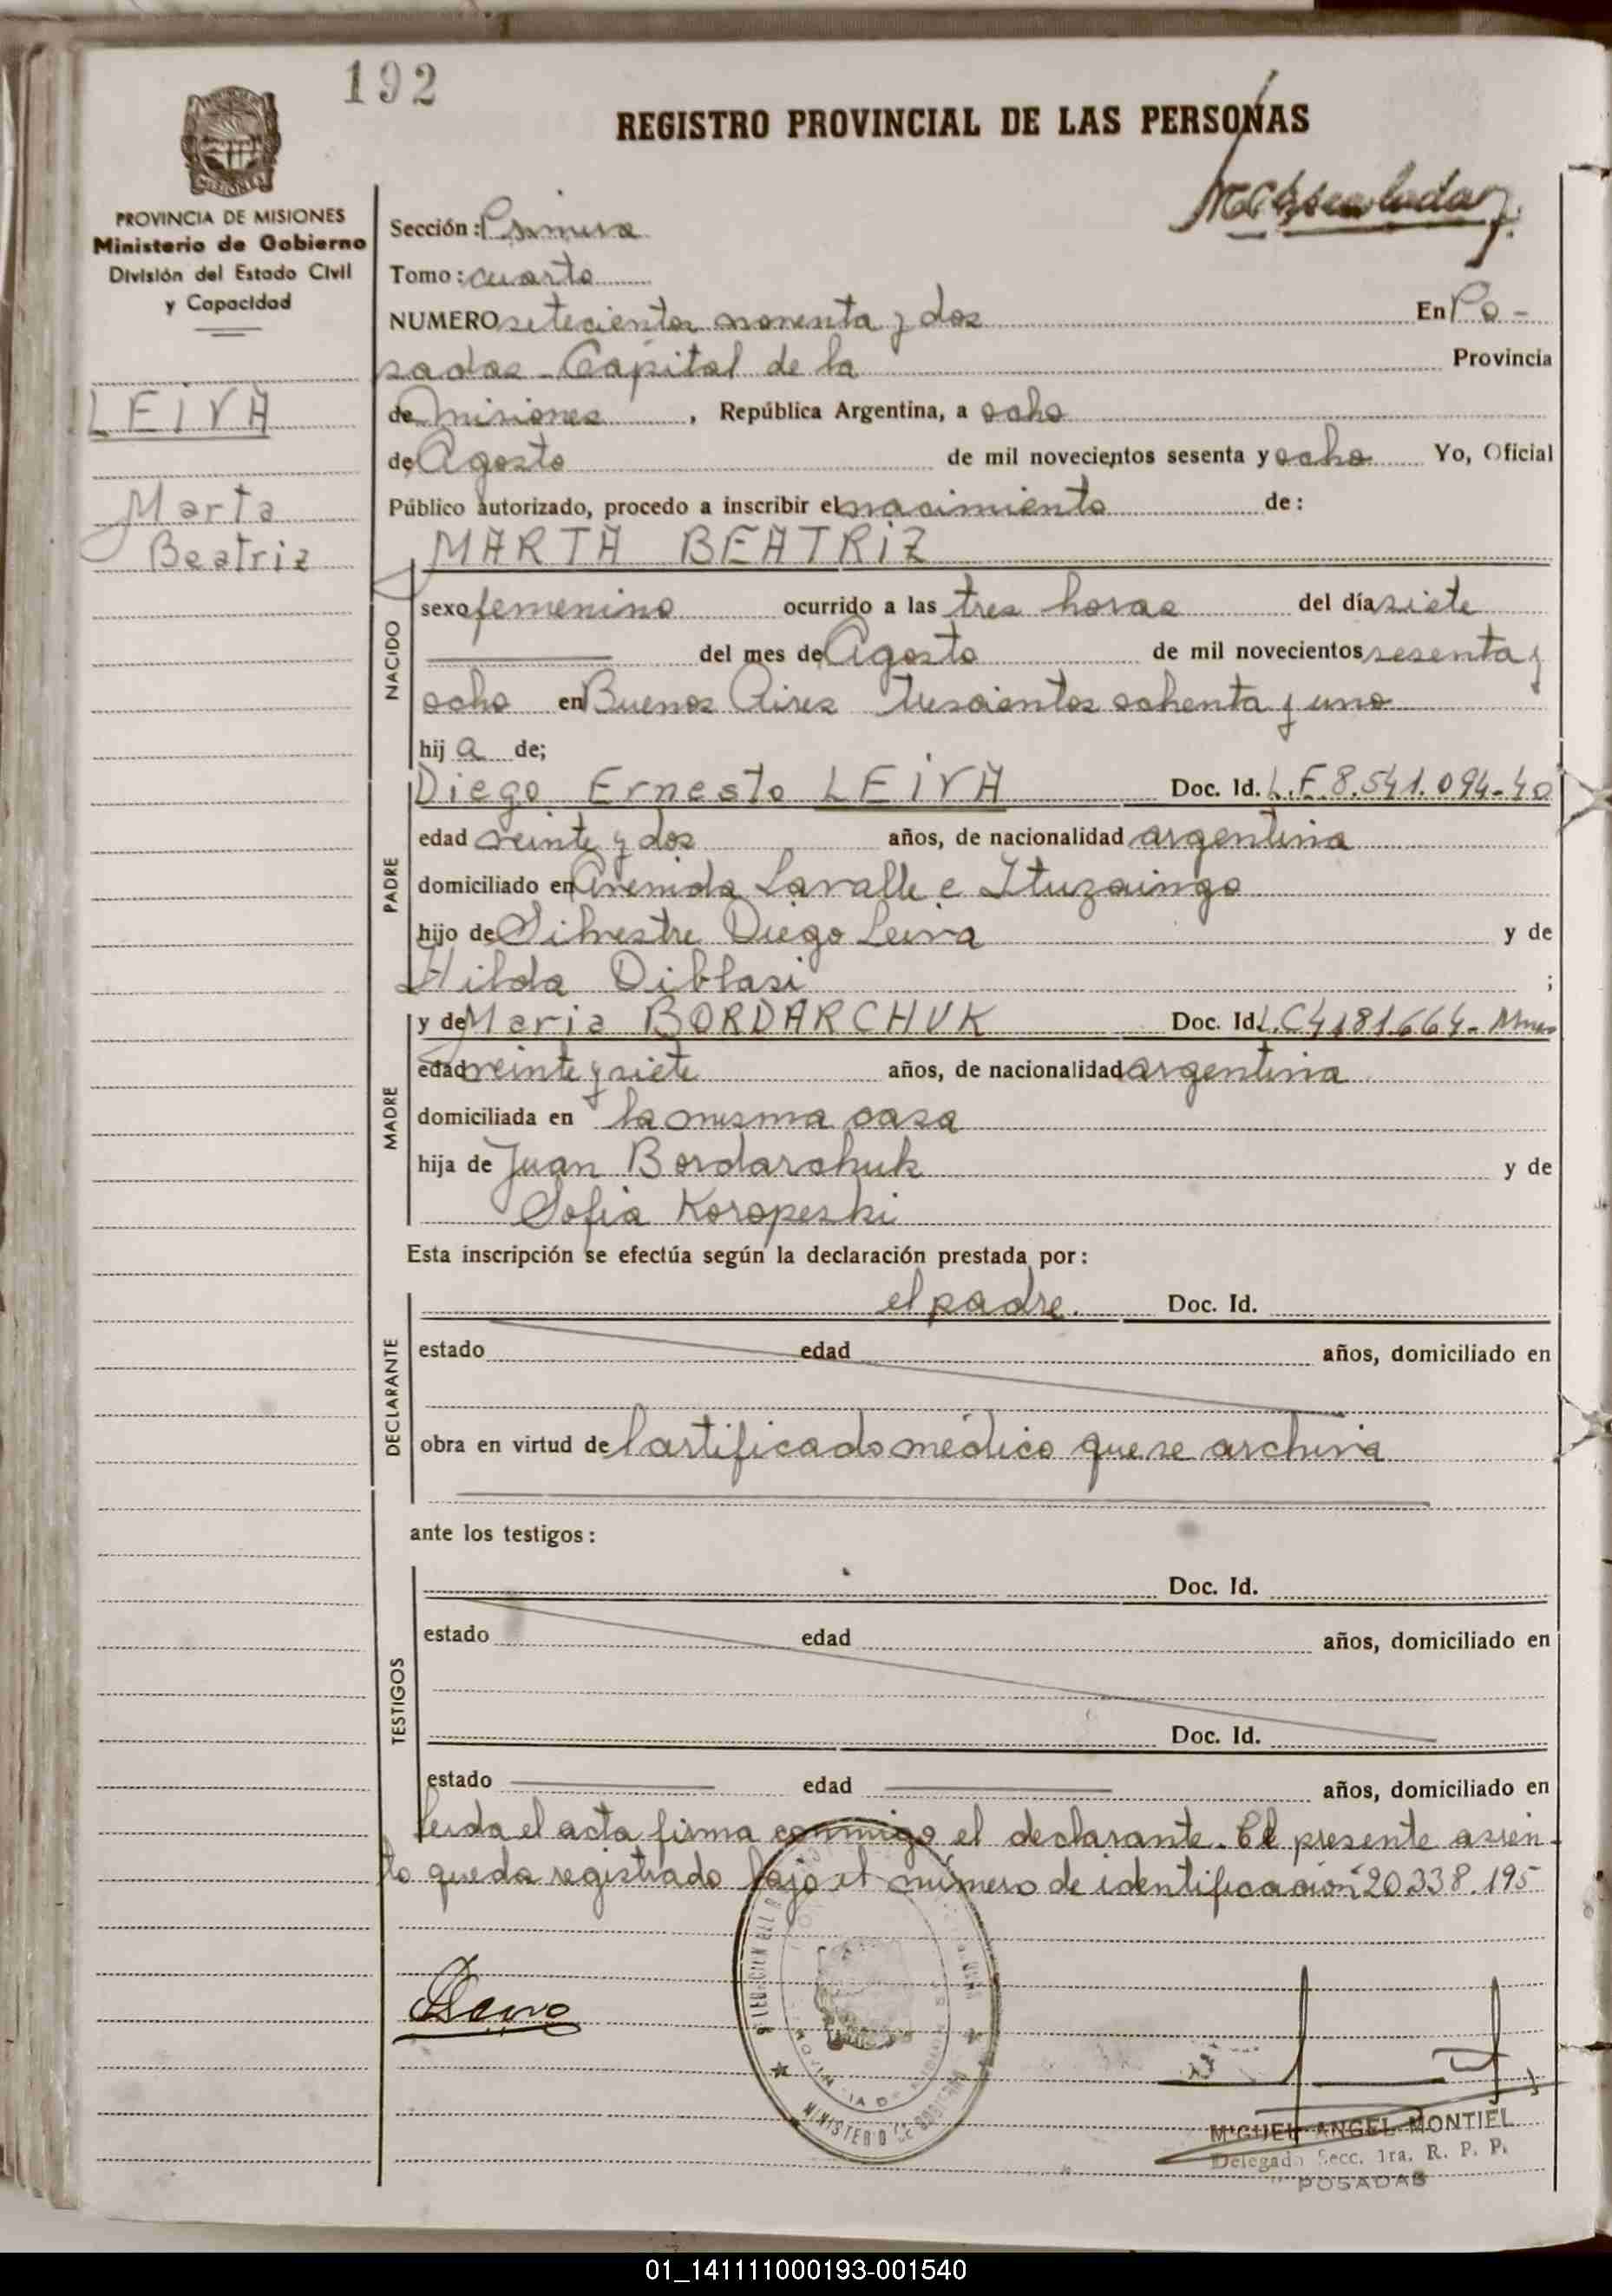 192
REGISTRO PROVINCIAL DE LAS PERSONAS
PROVINCIA DE MISIONES
Ministerio de Gobierno
División del Estado Civil
y Capacidad
LEIVA
Marta
Beatriz
Sección: Primera
Tomo: cuarto
NUMERO setecientos noventa y dos En Po-
sadas - Capital de la Provincia
de misiones, República Argentina, a ocho
de Agosto de mil novecientos sesenta y ocho Yo, Oficial
Público autorizado, procedo a inscribir el nacimiento de:
MARTA BEATRIZ
NACIDO
sexo femenino ocurrido a las tres horas del día siete
del mes de Agosto de mil novecientos sesenta y
ocho en Buenos Aires trescientos ochenta y uno
hij a de;
PADRE
Diego Ernesto LEIVA Doc. Id. L.E. 8.541.094-40
edad veinte y dos años, de nacionalidad argentina
domiciliado en Avenida Lavalle e Ituzaingo
hijo de Silvestre Diego Leiva y de
Hilda Diblasi ;
MADRE
y de Maria BORDARCHUK Doc. Id. L.C 4181.664-
edad veinte y siete años, de nacionalidad argentina
domiciliada en la misma casa
hija de Juan Bordarchuk y de
Sofia Koropeski
Esta inscripción se efectúa según la declaración prestada por:
DECLARANTE
el padre. Doc. Id.
estado edad años, domiciliado en
obra en virtud de lartificado médico que se archiva
ante los testigos:
TESTIGOS
Doc. Id.
estado edad años, domiciliado en
Doc. Id.
estado edad años, domiciliado en
Leida el acta firma conmigo el declarante. El presente asien-
to queda registrado bajo el número de identificación 20.338.195
MINISTERIO DE GOBIERNO
MIGUEL ANGEL MONTIEL
Delegado Secc. 1ra. R. P. P.
POSADAS
01_141111000193-001540